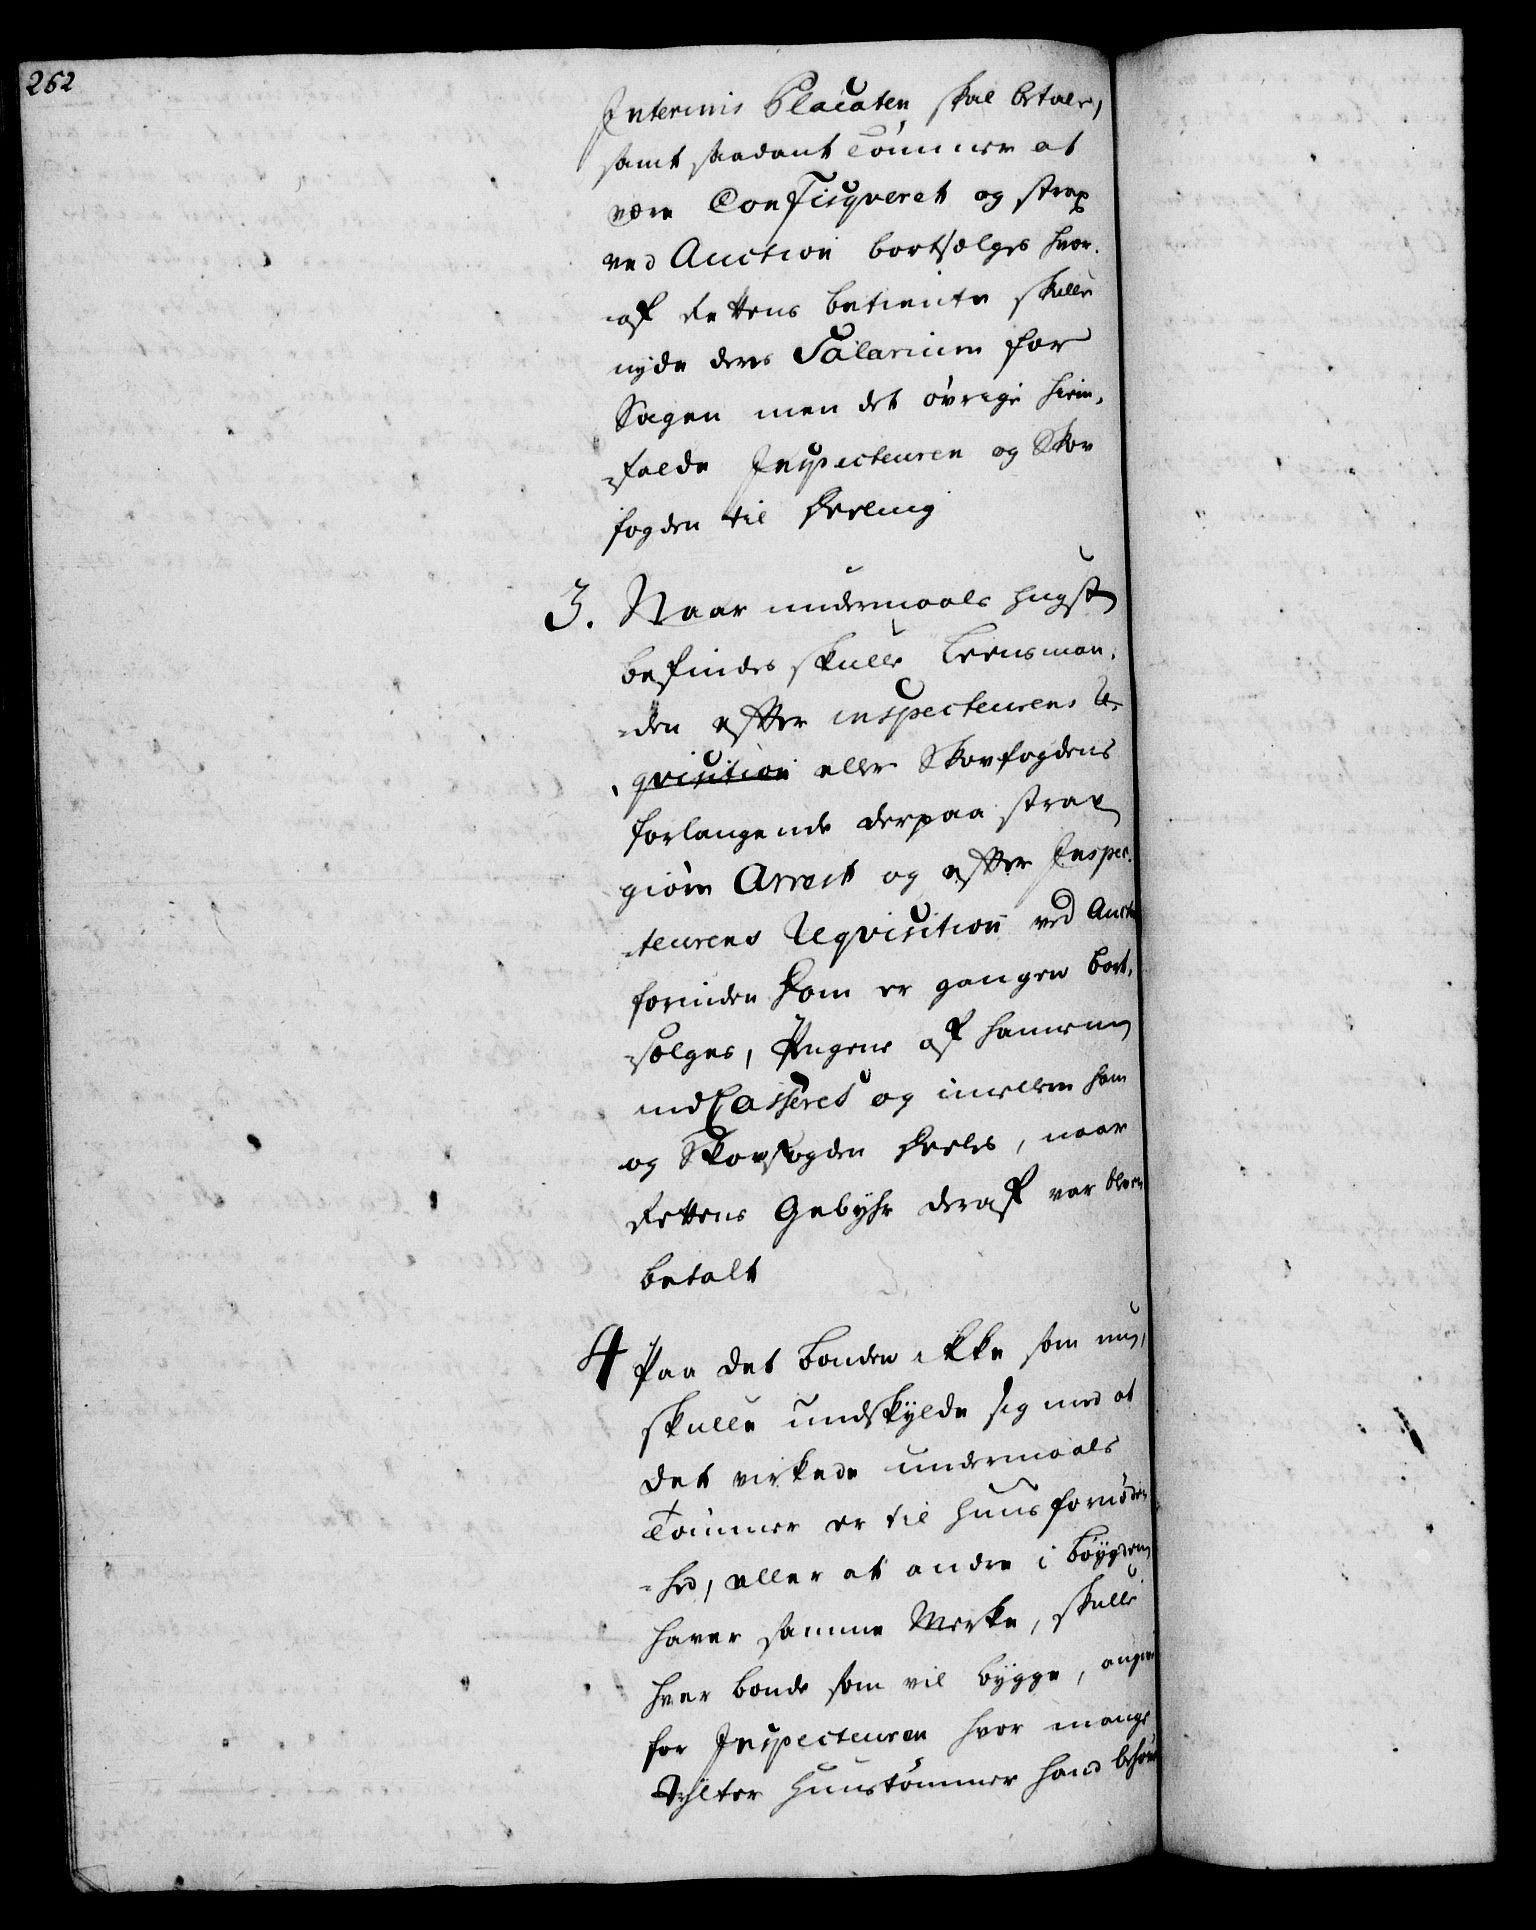 262
Interims Placaten skal betale,
samt saadant Tömmer at
være Confisqveret og strax
ved Auction bortsælges hvor-
af Rettens betiente skulle
nyde deres Salarium for
Sagen men det övrige hiem-
falde Inspecteuren og Skov
fogden til Deeling
3. Naar undermaals hugst
befindes skulle Leensman-
den efter inspecteurens Re-
qvisition eller Skovfogdens
forlangende derpaa strax
giöre Arrest og efter Inspec-
teurens Reqvisition ved Auction
forinden Dom er gangen bort-
sælges, Pengene af hannem
indCasseret og imellem ham
og Skovfogden Deeles, naar
Rettens Gebyhr deraf var bleven
betalt
4 Paa det bonden ikke som nu,
skulle undskylde sig med at
det virkede undermaals
Tömmer er til huus fornöden-
hed, eller at andre i böygden
haver samme Merke, skulle
hver bonde som vil bygge, angive
for Inspecteuren hvor mange
Tylter Huustömmer hand behöver